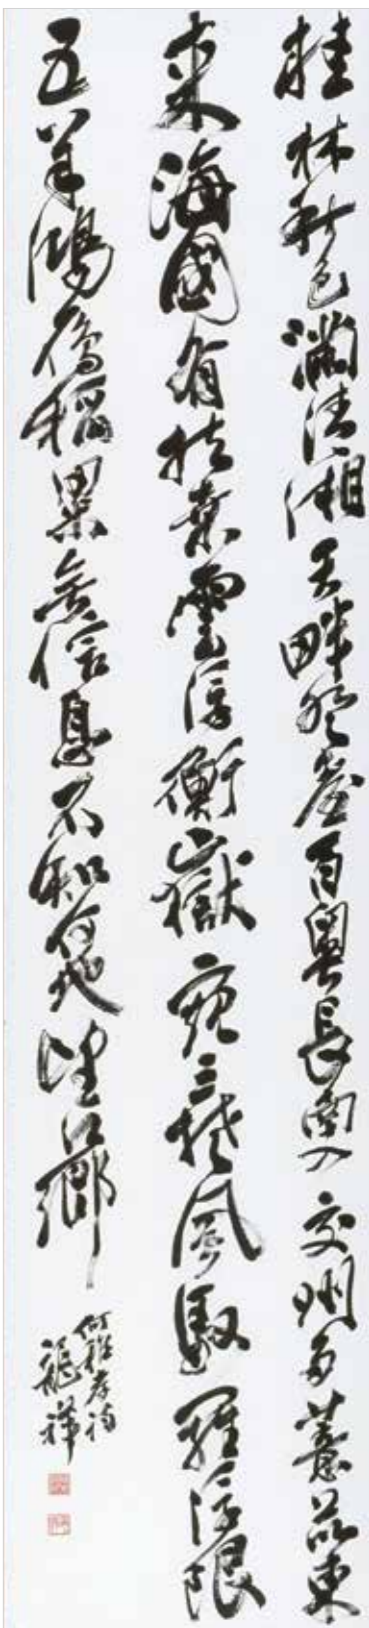 桂林秋色滿清湘天畔登臺百粵長南入交州多薏苡東
來海國有扶桑雲浮衡嶽三楚風馭羅浮限
五羊鴻雁稻粱無信息不知何地望江鄉
何詩
龍祥